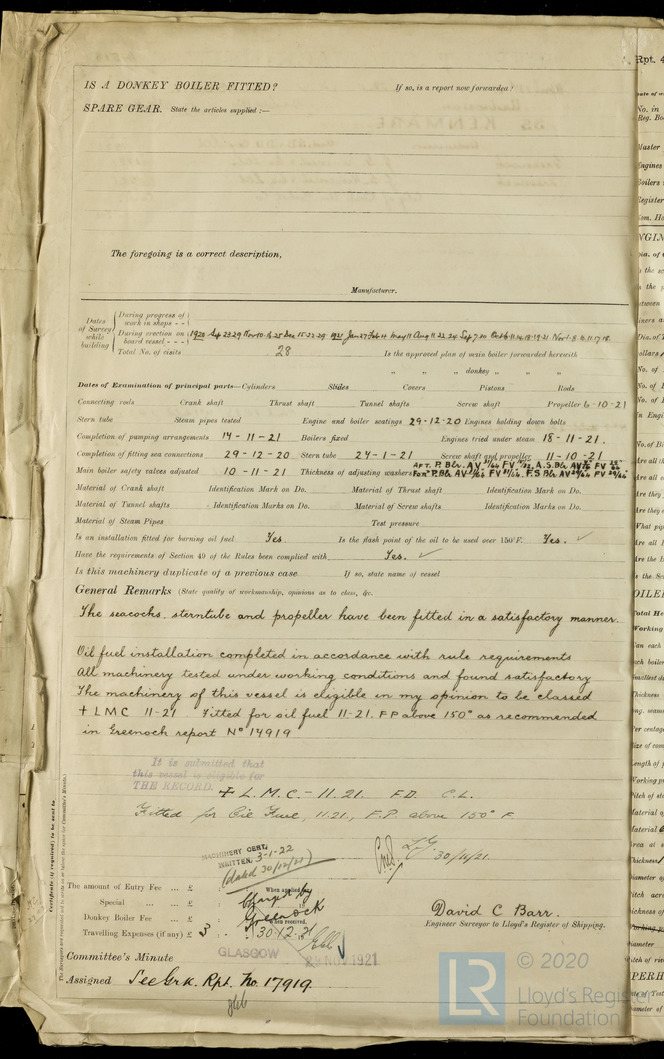 IS A DONKEY BOILER FITTED? If so, is a report now forwarded?
SPARE GEAR. State the articles supplied :—
The foregoing is a correct description,
Manufacturer.
Dates of Survey while building
During progress of work in shops - -
During erection on board vessel - - -
1920 Sep 23.29 Nov 10.16.25 Dec 15.22.29 1921 Jan 27 Feb 4 May 11 Aug 11.22.24 Sep 7.20 Oct 6.11.14.18.19.21 Nov 1.8.9.11.17.18
Total No. of visits 28 Is the approved plan of main boiler forwarded herewith
" " " donkey " " "
Dates of Examination of principal parts—Cylinders Slides Covers Pistons Rods
Connecting rods Crank shaft Thrust shaft Tunnel shafts Screw shaft Propeller 6-10-21
Stern tube Steam pipes tested Engine and boiler seatings 29-12-20 Engines holding down bolts
Completion of pumping arrangements 14-11-21 Boilers fixed Engines tried under steam 18-11-21.
Completion of fitting sea connections 29-12-20 Stern tube 27-1-21 Screw shaft and propeller 11-10-21
Main boiler safety valves adjusted 10-11-21 Thickness of adjusting washers
Material of Crank shaft Identification Mark on Do. Material of Thrust shaft Identification Mark on Do.
Material of Tunnel shafts Identification Marks on Do. Material of Screw shafts Identification Marks on Do.
Material of Steam Pipes Test pressure
Is an installation fitted for burning oil fuel Yes Is the flash point of the oil to be used over 150°F. Yes. ✓
Have the requirements of Section 49 of the Rules been complied with Yes. ✓
Is this machinery duplicate of a previous case If so, state name of vessel
General Remarks (State quality of workmanship, opinions as to class, &c.
The seacocks, sterntube and propeller have been fitted in a satisfactory manner.
Oil fuel installation completed in accordance with rule requirements
All machinery tested under working conditions and found satisfactory
The machinery of this vessel is eligible in my opinion to be classed
+ LMC 11-21 Fitted for oil fuel 11-21. FP above 150° as recommended
in Greenock report No 17919
It is submitted that
this vessel is eligible for
THE RECORD. + L.M.C.- 11.21. F.D. C.L.
Fitted for Oil Fuel, 11.21, F.P. above 150° F.
30/12/21.
MACHINERY CERT.
WRITTEN. 3-1-22
(dated 30/12/21)
The amount of Entry Fee ... £ : : When applied for,
Special ... ... £ : :
Donkey Boiler Fee ... £ : : When received,
Travelling Expenses (if any) £ 3 : : 30.12.21
Greenock
David C Barr.
Engineer Surveyor to Lloyd's Register of Shipping.
GLASGOW 29 NOV 1921
Committee's Minute
Assigned See Grk. Rpt. No. 17919.
Certificate (if required) to be sent to
© 2020
LR
Lloyd's Register
Foundation
Rpt. 4
No. in
Reg. Bo
Master
Engines
Boilers